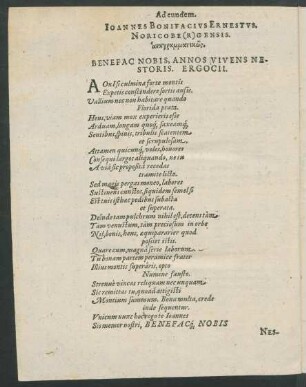 Ad eundem.
IOANNES BONIFACIUS ERNESTVS.
NORICOBE(R)GENSIS.
BENEFAC NOBIS, ANNOS VIVENS NE-
STORIS. ERGOCII.
AOnij si culmina forte montis
Expetis conscendere fortis ausis,
Vallium nec non habitare quondã
Florida prata.
Heus, viam mox experieris esse
Arduam, longam quoq́;, saxeamq́;
Sentibus, spinis, tribulis scatentem
et scrupulosam.
Attamen quicunq́;, voles, honores
Consequi largos aliquando, non
A via sic proposita recedas
tramite
Sed magis pergas moveo, labores
Sustinens cunctos, siquidem semel si
Est tuis isthæc pedibus subacta
et superata.
Deinde tam pulchrum nihil est, decens tam
Tam venustum, tam preciosum in orbe
Nil, bonis, hens, compararier quod
possiet istis.
Quare cum, magna sine laborum
Turbinam partem peramice frater
Illius montis superaris, opto
Numine fausto.
Strenuè vincas reliquam nec unquam
Sic remittas tu, quoad attigisti
Montium summum. Bona multa, crede
inde sequentur.
Vnicum nunc hoc rogito Ioannes
Sis memor nostri, BENEFACq́; NOBIS
NES-